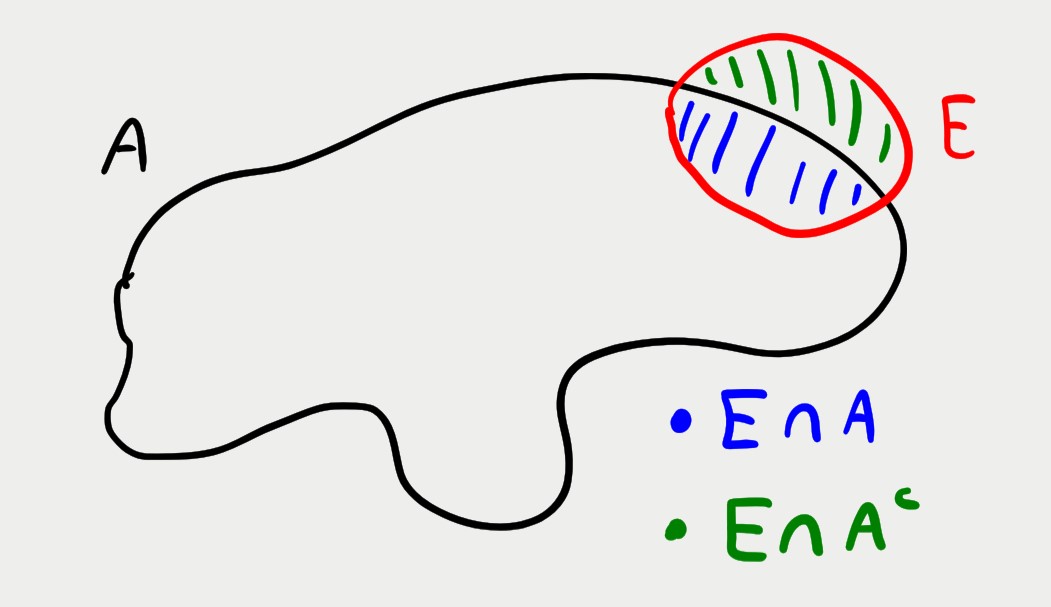 A
E
• E∩A
• E∩Aᶜ